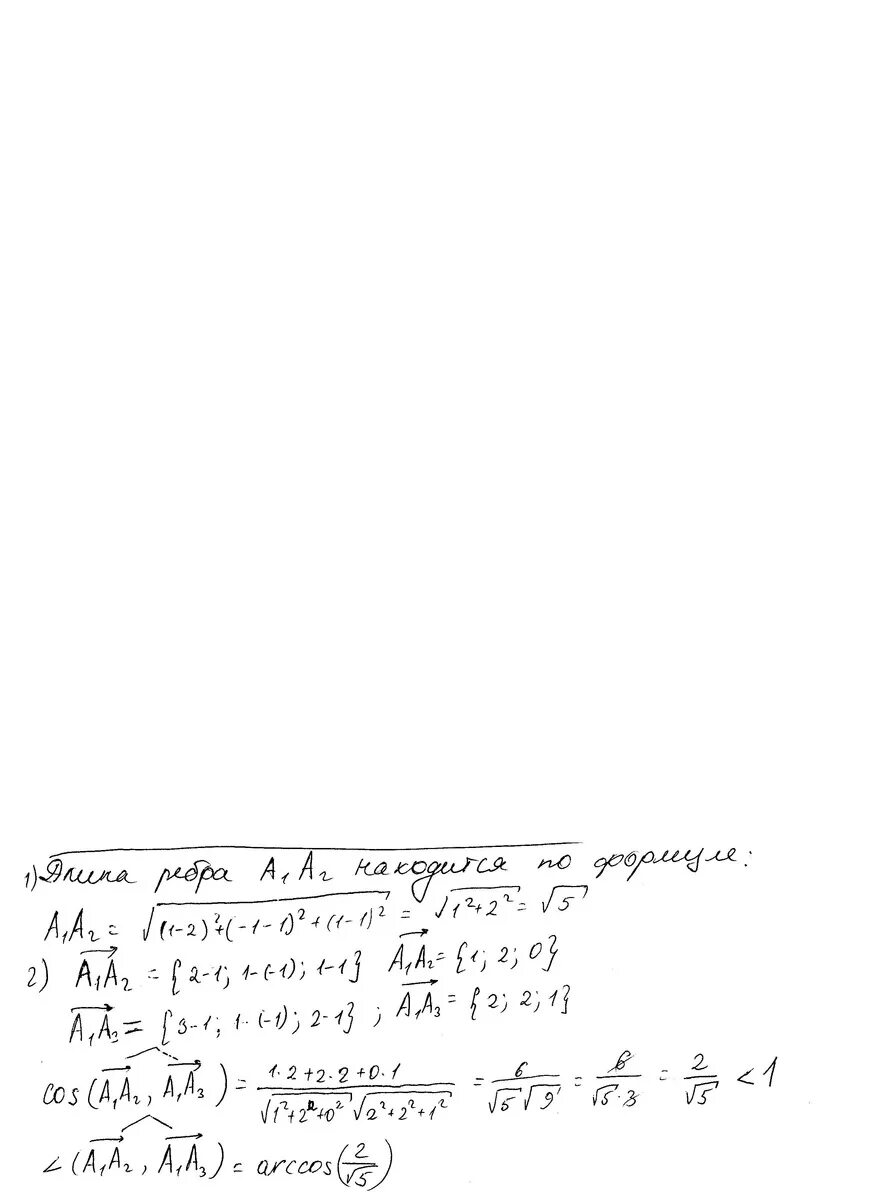 1) Длина ребра A₁A₂ находится по формуле:
A₁A₂ = √((1-2)²+(-1-1)²+(1-1)²) = √(1²+2²) = √5
2) A₁A₂ = {2-1; 1-(-1); 1-1} A₁A₂ = {1; 2; 0}
A₁A₃ = {3-1; 1-(-1); 2-1} ; A₁A₃ = {2; 2; 1}
cos(A₁A₂, A₁A₃) = (1·2+2·2+0·1)/(√(1²+2²+0²)√(2²+2²+1²)) = 6/(√5√9) = 6/(√5·3) = 2/√5 < 1
∠(A₁A₂, A₁A₃) = arccos(2/√5)